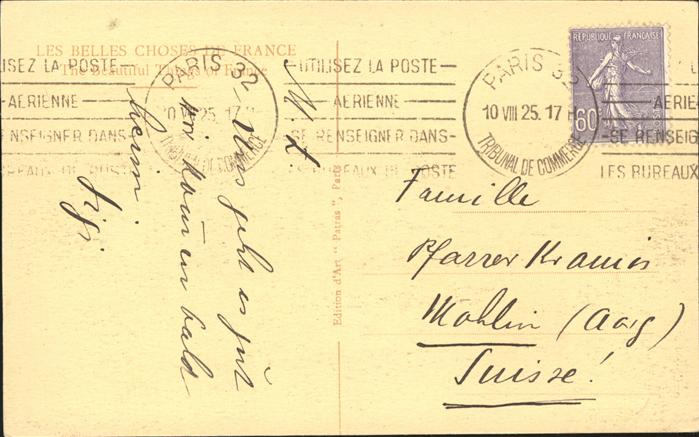 LES BELLES CHOSES DE FRANCE
The Beautiful Things of France
UTILISEZ LA POSTE
AERIENNE
SE RENSEIGNER DANS
LES BUREAUX DE POSTE
PARIS
10 VIII 25. 17 H
TRIBUNAL DE COMMERCE
REPUBLIQUE FRANÇAISE
60
M. L.
Uns geht es gut
wir kommen bald
heim.
Edition d'Art " Patras ", Paris
Famille
Pfarrer Kramis
Möhlin (Aarg)
Suisse!